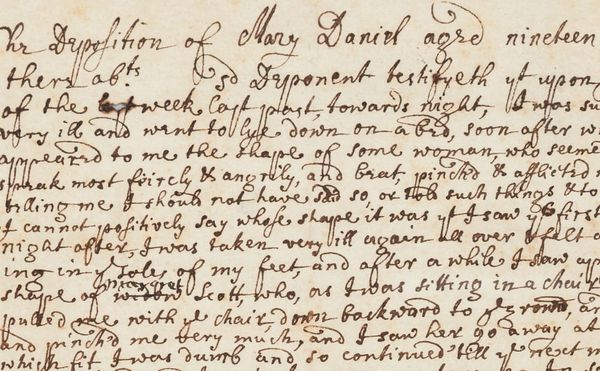 The Deposition of Mary Daniel aged nineteen
there abts sd Deponent testifyeth yt uppon
of the week last past, towards night, I was su
very ill and went to lye down on a bed, soon after w
appeared to me the shape of some woman, who seeme
speak most feircly & angrily, and beat, pinch'd & afflicted
telling me I should not have sed so, or told such things & to
I cannot positively say whose shape it was yt I saw ye first
night after, I was taken very ill again all over & felt a
ing in ye soles of my feet, and after a while I saw app
shape of margret Scott who, as I was sitting in a chair
pulled me with ye chair, down backward to ye grownd, an
and pinch'd me very much, and I saw her go away at
which fit I was dumb and so continued till ye next m